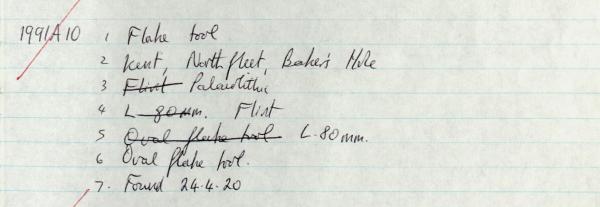 1991A10 1 Flake tool
2 Kent, Northfleet, Baker's Hole
3 Flint Palaeolithic
4 L 80mm. Flint
5 Oval flake tool L. 80mm.
6 Oval flake tool.
7. Found 24.4.20